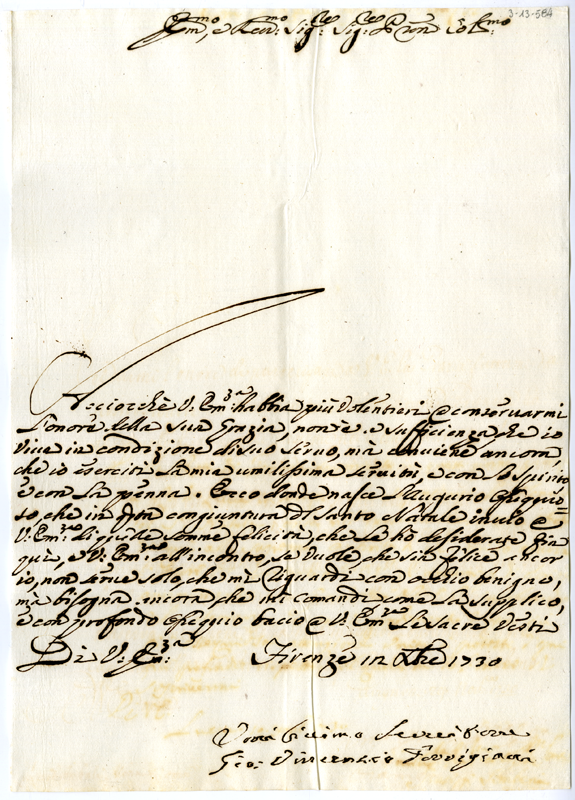 3-13-584
Em.mo e Rev.mo Sig.re Sig.re Pron Col.mo
Acciocchè V. Em.za habbia più volentieri a conservarmi
l'onore della sua grazia, non è a sufficienza che io
viva in condizione di suo servo, mà conviene ancora,
che io eserciti la mia umilissima servitù, e con lo spirito
e con la penna. Ecco donde nasce l'Augurio ossequio=
so, che in q̃ta congiuntura del Santo Natale invio a
V. Em.za di quelle somme felicità, che le hò desiderate fin
qui, e V. Em.za all'incontro, se vuole che sia felice ancor
io, non serve solo, che mi riguardi con occhio benigno,
mà bisogna ancora che mi comandi come la supplico,
e con profondo ossequio bacio a V. Em.za le sacre Vesti
Di V. Em.za Firenze 12 Xbre 1730
Servitore
Gio: